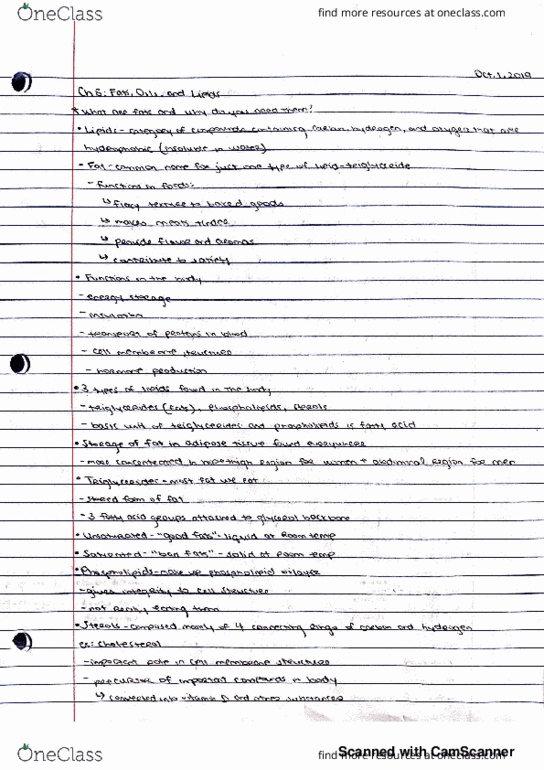 OneClass
find more resources at oneclass.com
Oct. 1, 2019
Ch 5: Fats, Oils, and Lipids
* What are fats and why do you need them?
• Lipids - category of compounds containing carbon, hydrogen, and oxygen that are
hydrophobic (insoluble in water)
- Fat - common name for just one type of lipid - triglyceride
- Functions in foods:
↳ flaky texture to baked goods
↳ makes meats tender
↳ provide flavor and aromas
↳ contribute to satiety
• Functions in the body
- energy storage
- insulation
- transport of proteins in blood
- cell membrane structure
- hormone production
• 3 types of lipids found in the body
- triglycerides (fats), phospholipids, sterols
- basic unit of triglycerides and phospholipids is fatty acid
• Storage of fat in adipose tissue found everywhere
- more concentrated in region for women + abdominal region for men
• Triglycerides - most fat we eat
- stored form of fat
- 3 fatty acid groups attached to glycerol backbone
• Unsaturated - "good fats" - liquid at room temp
• Saturated - "bad fats" - solid at room temp
• Phospholipids - make up phospholipid bilayer
- gives integrity to cell structure
- not really eating them
• Sterols - composed mainly of 4 connecting rings of carbon and hydrogen
ex: cholesterol
- important role in cell membrane structures
- precursor of important compounds in body
↳ converted into vitamin D and other substances
OneClass
find more resources at oneclass.com
Scanned with CamScanner